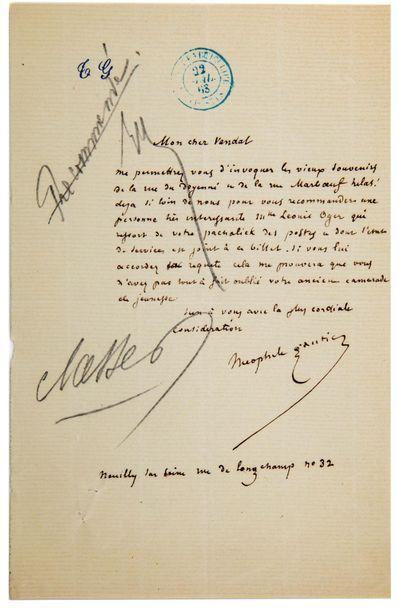 T G
22
68
Recommandé
Mon cher Vandal
me permettrez vous d'invoquer les vieux souvenirs
de la rue du Doyenné et de la rue Marbœuf helas!
deja si loin de nous pour vous recommander une
personne très interessante Mlle Léonie Oger qui
ressort de votre pachalick des postes et dont l'etat
de services est joint à ce billet. Si vous lui
accordez sa requete cela me prouvera que vous
n'avez pas tout à fait oublié votre ancien camarade
de jeunesse
à vous avec la plus cordiale
consideration
Theophile Gautier
Classer
Neuilly sur Seine rue de Longchamp no 32